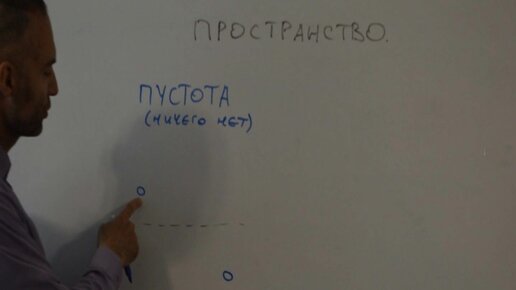 ПРОСТРАНСТВО.
ПУСТОТА
(НИЧЕГО НЕТ)